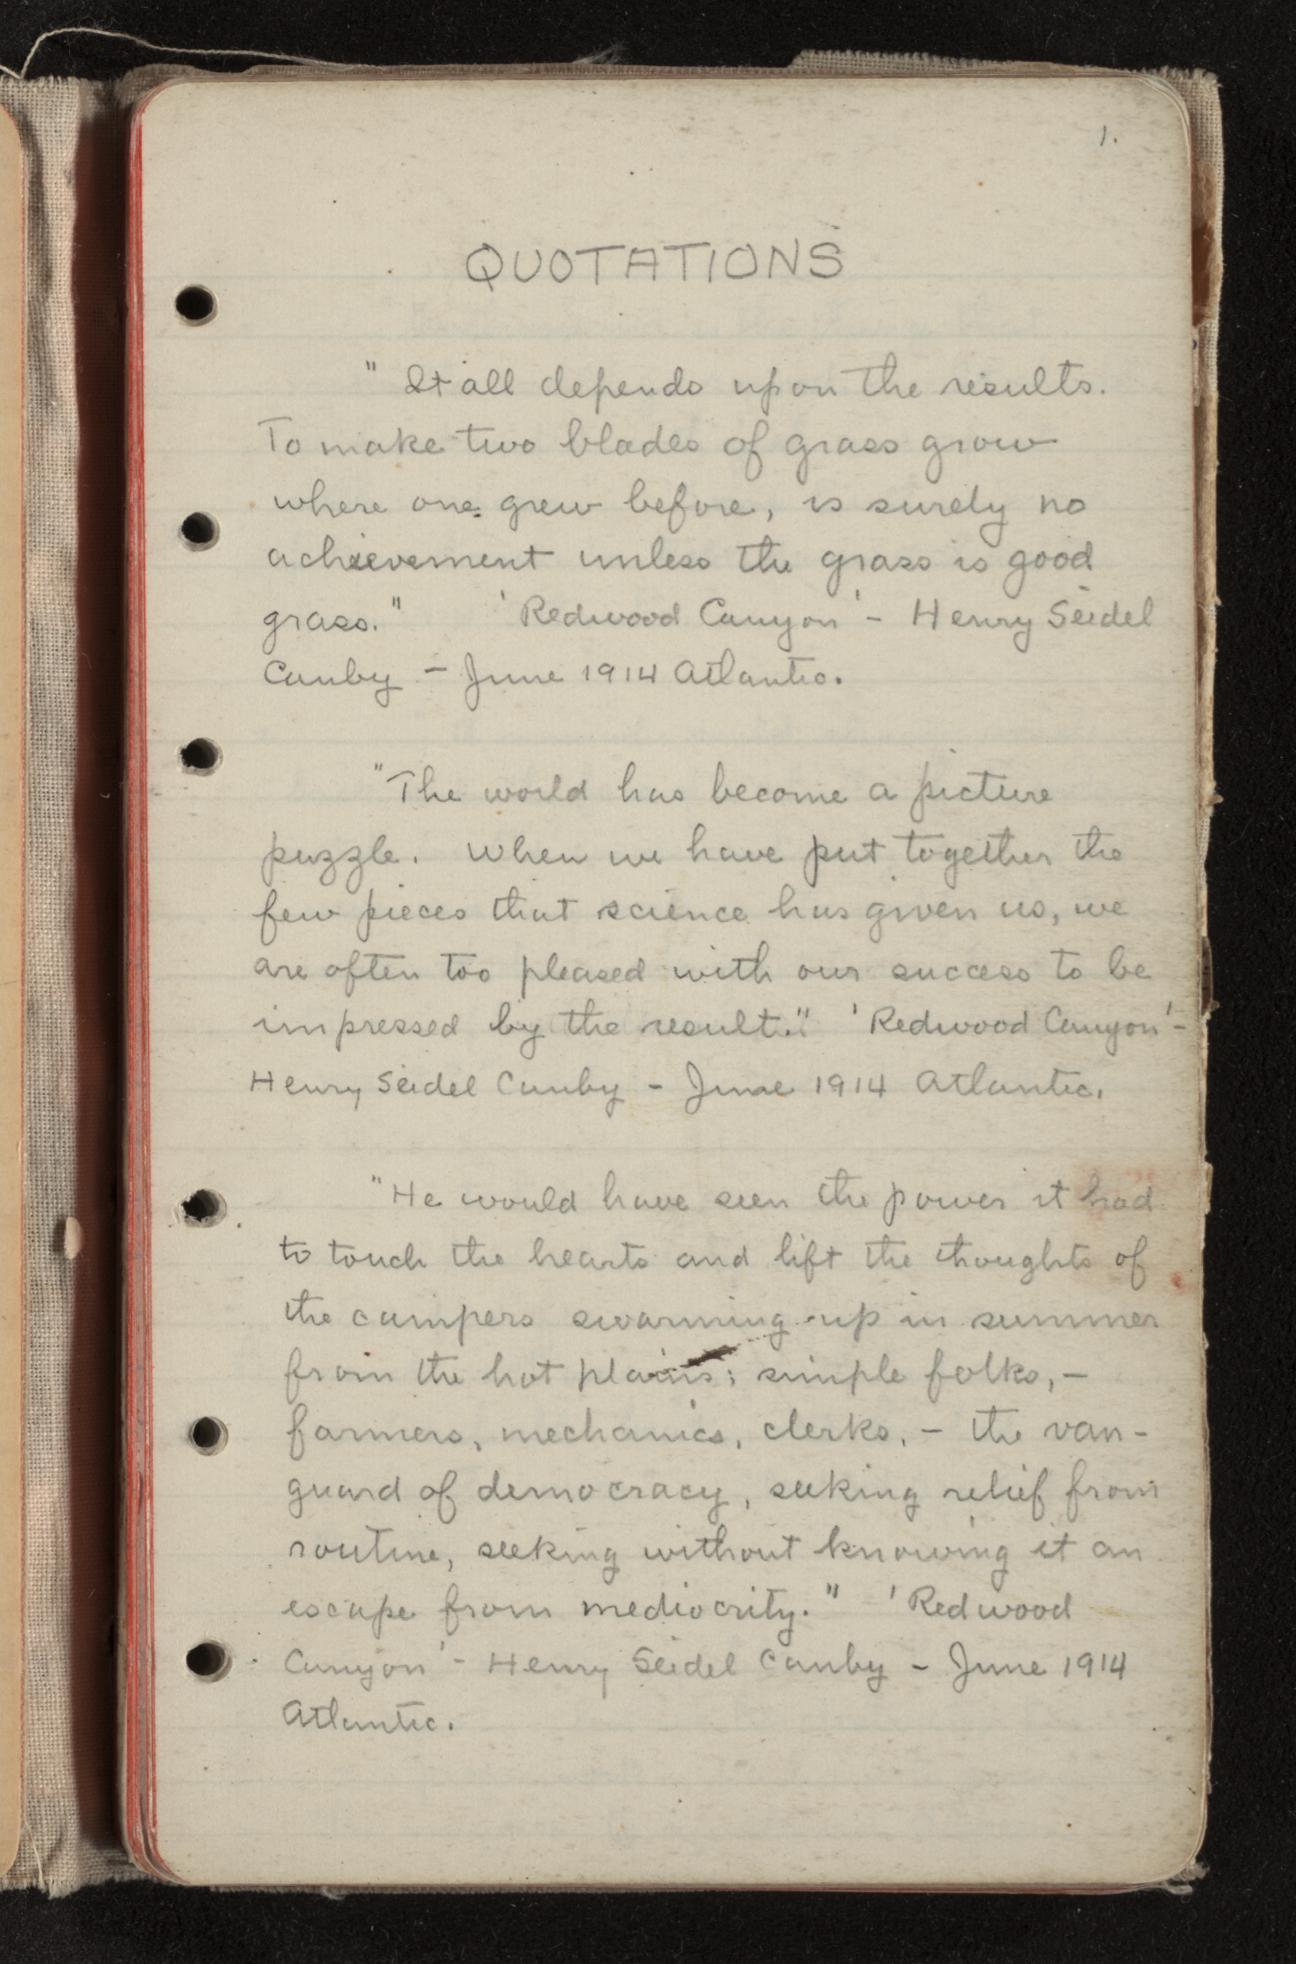 1.
QUOTATIONS
" It all depends upon the results.
To make two blades of grass grow
where one grew before, is surely no
achievement unless the grass is good
grass." 'Redwood Canyon' - Henry Seidel
Canby - June 1914 Atlantic.
"The world has become a picture
puzzle. When we have put together the
few pieces that science has given us, we
are often too pleased with our success to be
impressed by the result." 'Redwood Canyon' -
Henry Seidel Canby - June 1914 Atlantic.
"He would have seen the power it had
to touch the hearts and lift the thoughts of
the campers swarming up in summer
from the hot plains; simple folks, -
farmers, mechanics, clerks, - the van-
guard of democracy, seeking relief from
routine, seeking without knowing it an
escape from mediocrity." 'Redwood
Canyon' - Henry Seidel Canby - June 1914
Atlantic.